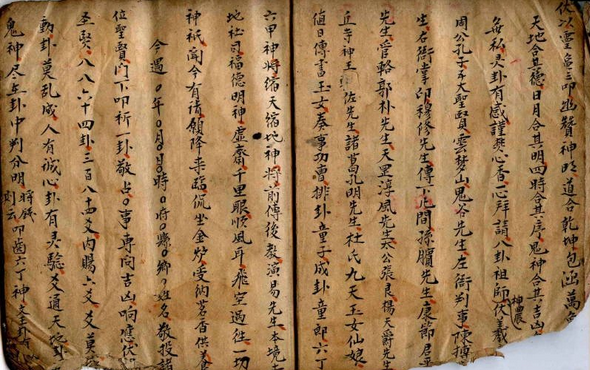 伏以靈龜三叩幽贊神明道合乾坤包涵萬
天地合其德日月合其明四時合其序鬼神合其吉凶
無私灵卦有感謹焚心香一心拜請八卦祖師伏羲神農
周公孔子五大聖賢雲夢山鬼谷先生左衙判事陳摶
生右衙掌印穆修先生傳下問孫臏先生康節君平
先生管輅郭朴先生天罡淳風先生太公張良楊天爵先生
丘寺神王佐先生諸葛孔明先生杜氏九天玄女仙娘
值日傳書玉女奏事功曹排卦童子成卦童郎六丁
六甲神將縮天縮地神將前傳後教演易先生本境土
地社司福德明神虛齋千里眼順風耳飛空過往一切
神祇聞今有請願降來臨坐金炉受納茗香供養
今遇〇年〇月〇日〇時〇府〇縣〇鄉〇姓名敬投諸
位聖賢門下叩祈一卦敬占〇事專問吉凶响應伏
聖爻八八六十四卦三百八十四爻內賜六爻爻莫
動卦莫乱成人有誠心卦有灵驗爻通天地卦
鬼神尽在卦中判分明
則云叩齒六丁神文王